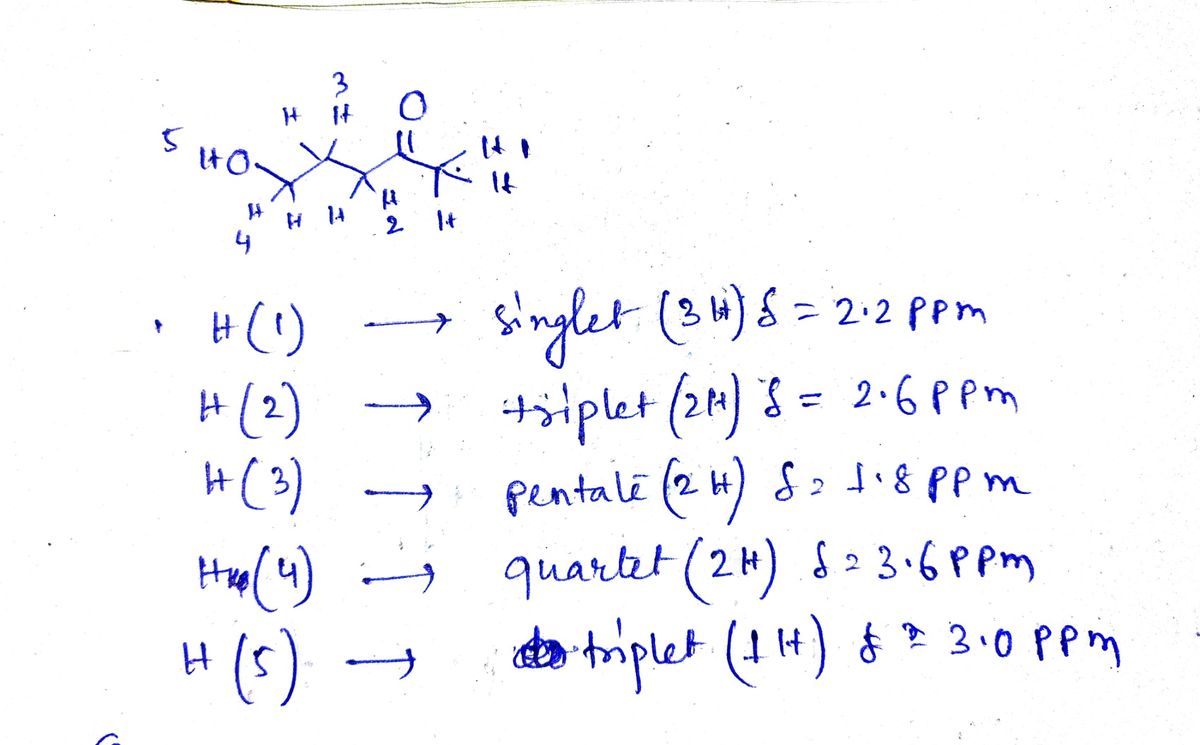 3
H H O
5 HO H 1
H
H H H H H
4 2
H(1) → singlet (3H) δ = 2.2 ppm
H(2) → triplet (2H) δ = 2.6 ppm
H(3) → pentate (2H) δ = 1.8 ppm
H(4) → quartet (2H) δ = 3.6 ppm
H(5) → triplet (1H) δ = 3.0 ppm